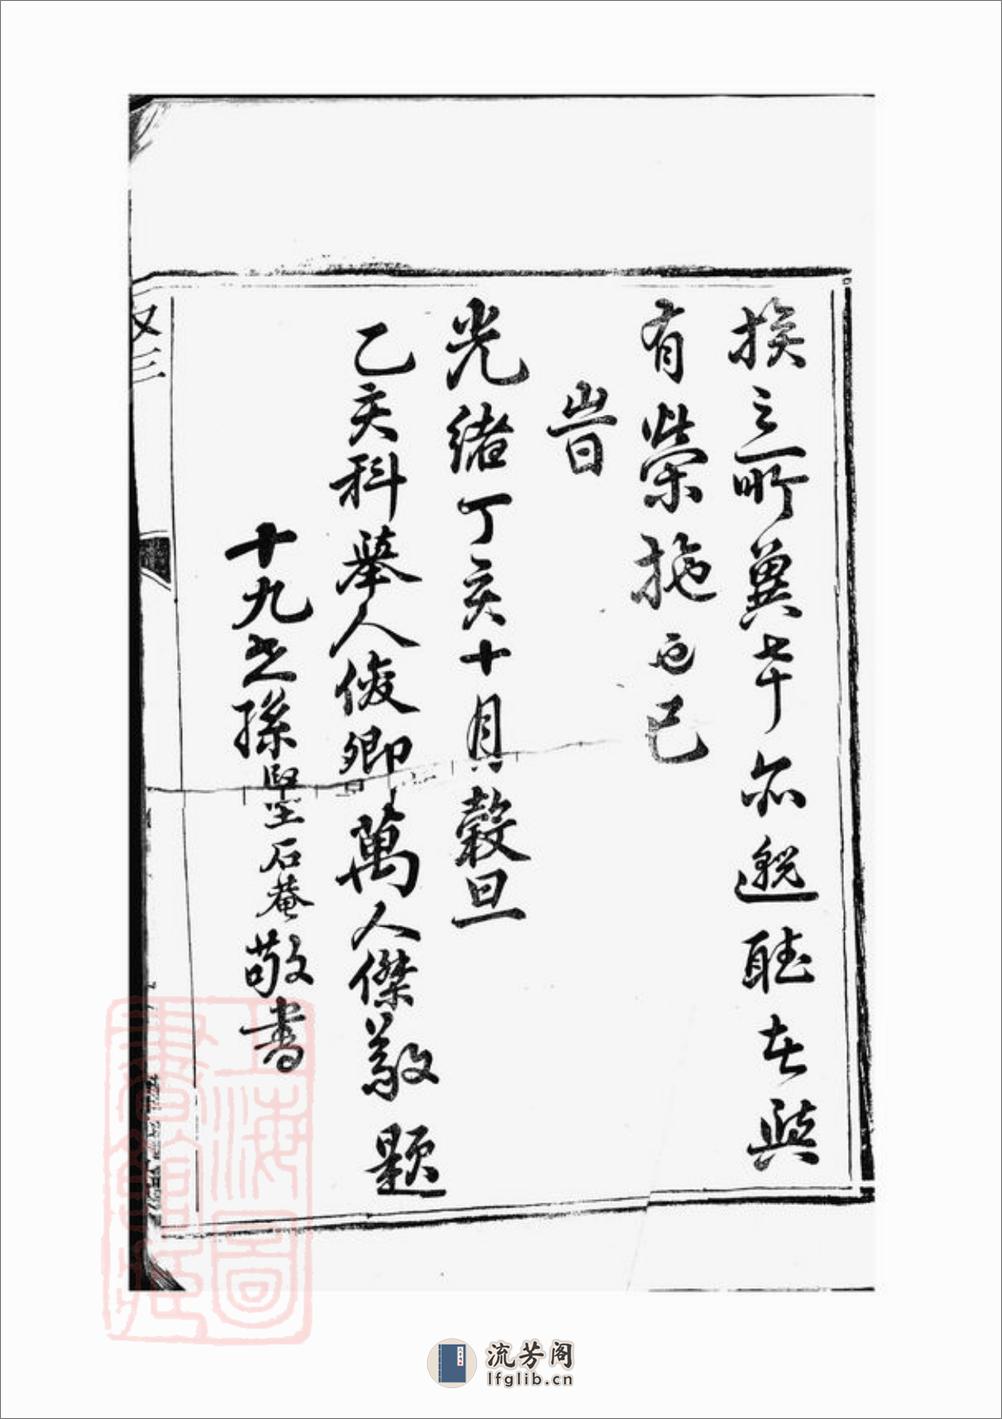 挨之所冀於亦邈聽者與
有榮施也已
旹
光緒丁亥十月穀旦
乙亥科舉人俊卿萬人傑敬題
十九世孫堅石菴敬書
三
上海圖書館藏
流芳阁
lfglib.cn